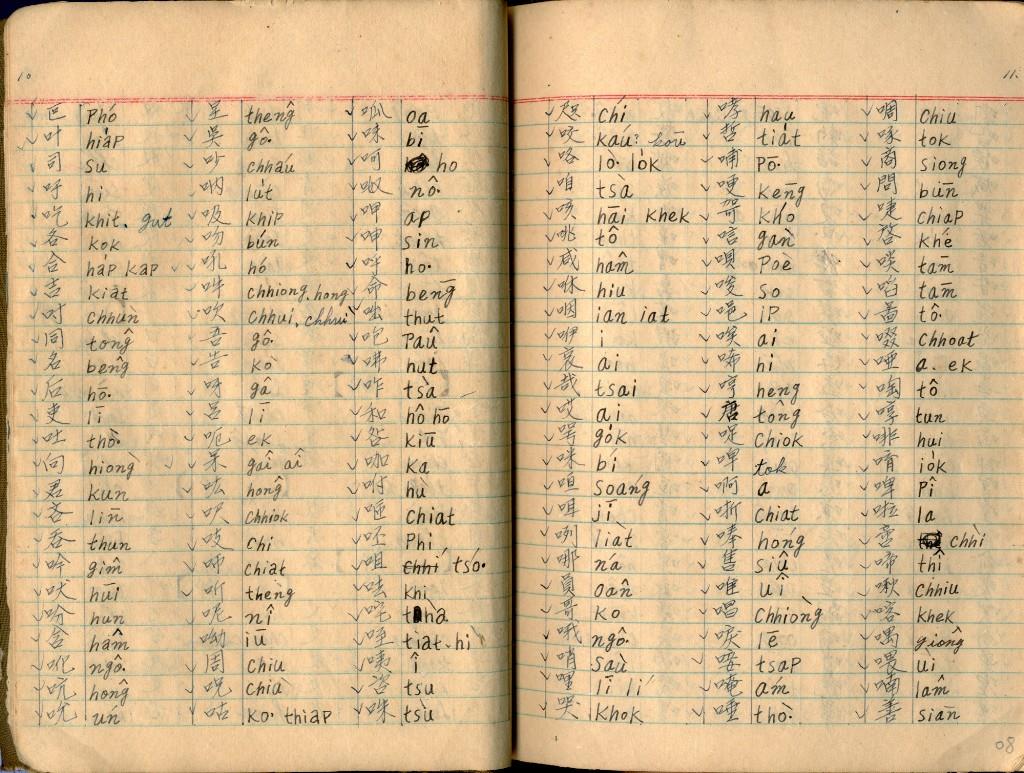 10
叵 Phó
叶 hia̍p
司 su
呼 hi
吃 khit, gut
各 kok
合 ha̍p kap
吉 kiat
吋 chhùn
同 tông
名 bêng
后 hō͘
吏 lī
吐 thò͘
向 hiòng
君 kun
吝 līn
吞 thun
吟 gîm
吠 hūi
吩 hun
含 hâm
吪 ngô͘
吭 hông
吮 ún
呈 thêng
吳 gô͘
吵 chháu
吶 lu̍t
吸 khip
吻 bún
吼 hó
chhiong, hong
吹 chhui, chhui
吾 gô͘
告 kò
呀 gâ
呂 lī
呃 ek
呆 gâi ai
吰 hông
chhiok
吱 chi
chiat
听 thèng
呢 nî
呦 iū
周 chiu
呪 chiù
咕 ko͘ thiap
呱 oa
味 bī
呵 ho
呶 nô͘
呷 ap
呻 sin
呼 ho͘
命 bēng
咄 thut
咆 Pâu
咈 hut
咋 tsà
和 hô hō
咎 kiū
咖 ka
咐 hù
咂 chiat
呸 Phi
咀 tsó͘
呿 Khi
咤 tha
咥 tia̍t, hi
咦 î
咨 tsu
咮 tsù
11.
咫 chí
咬 kaú? koū
咯 lo͘ lo̍k
咱 tsà
咳 hāi khek
咷 tô
咸 hâm
咻 hiu
咽 ian iat
咿 i
哀 ai
哉 tsai
哎 ai
咢 go̍k
咪 bí
咺 soáng
咡 jī
咧 lia̍t
哪 ná
員 oân
哥 ko
哦 ngô͘
哨 saù
哩 lī lí
哭 khok
哮 hau
哲 tiat
哺 Pō͘
哽 kéng
哿 khó
唁 gān
唄 Poē
唆 so
唈 iP
唉 ai
唏 hi
哼 heng
唐 tông
捉 chiok
啄 tok
啊 a
哳 chiat
唪 hong
售 siû
唯 ui
唱 chhiòng
唳 lē
唼 tsap
唵 ám
唾 thò͘
啁 chiu
啄 tok
商 siong
問 būn
啑 chiap
啓 khé
啖 tām
啗 tām
啚 tô͘
啜 chhoat
啞 a. ek
啕 tô
啍 tun
啡 hui
唷 io̍k
啤 Pî
啦 la
啻 chhì
啼 thî
啾 chhiu
喀 khek
喁 giông
喂 ui
喃 lâm
善 siān
08